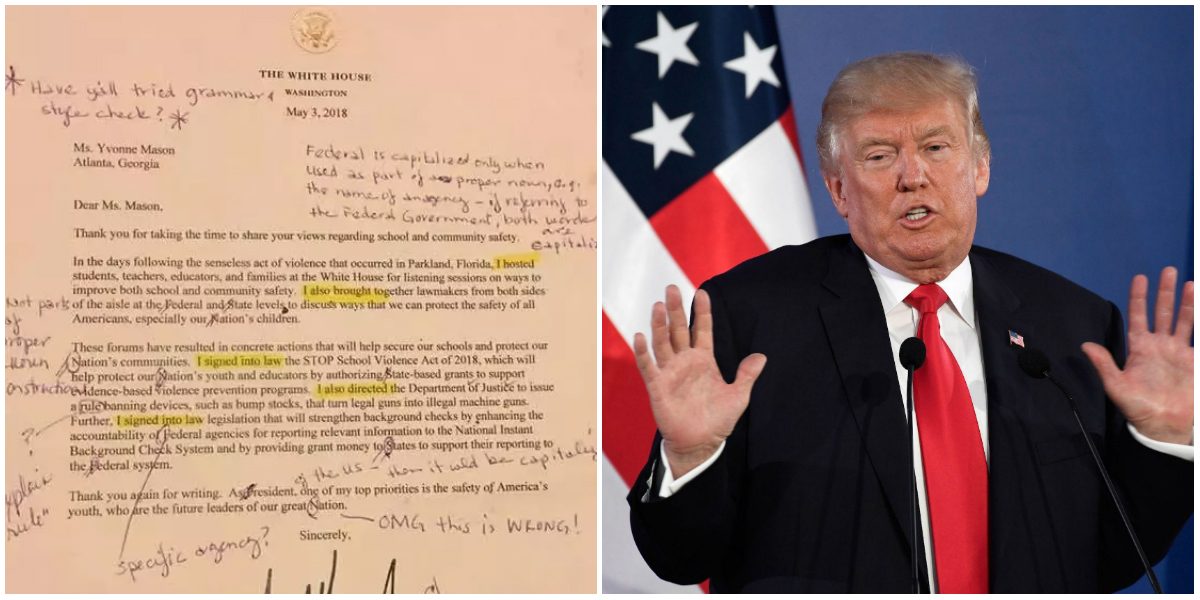 THE WHITE HOUSE
* Have y'all tried grammar &
WASHINGTON
style check? *
May 3, 2018
Ms. Yvonne Mason
Atlanta, Georgia
Federal is capitalized only when
used as part of proper noun, e.g.
the name of an agency - if referring to
the Federal Government, both words
are
capitaliz
Dear Ms. Mason,
Thank you for taking the time to share your views regarding school and community safety.
In the days following the senseless act of violence that occurred in Parkland, Florida, I hosted
students, teachers, educators, and families at the White House for listening sessions on ways to
improve both school and community safety. I also brought together lawmakers from both sides
of the aisle at the Federal and State levels to discuss ways that we can protect the safety of all
Americans, especially our Nation's children.
Not part
of
proper
noun
onstruction
These forums have resulted in concrete actions that will help secure our schools and protect our
Nation's communities. I signed into law the STOP School Violence Act of 2018, which will
help protect our Nation's youth and educators by authorizing State-based grants to support
evidence-based violence prevention programs. I also directed the Department of Justice to issue
a rule banning devices, such as bump stocks, that turn legal guns into illegal machine guns.
Further, I signed into law legislation that will strengthen background checks by enhancing the
accountability of Federal agencies for reporting relevant information to the National Instant
Background Check System and by providing grant money to States to support their reporting to
the Federal system.
?
xplain
rule"
of the US - then it wld be capitaliz
Thank you again for writing. As President, one of my top priorities is the safety of America's
youth, who are the future leaders of our great Nation.
OMG this is WRONG!
Sincerely,
specific agency?